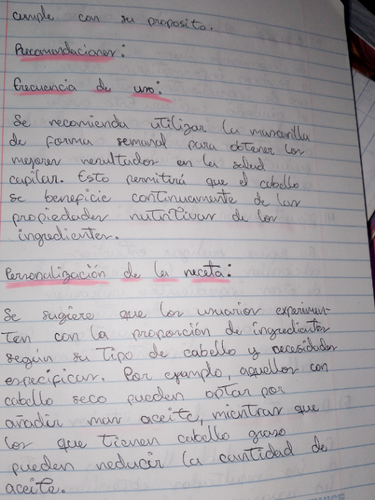 cumple con su proposito.
Recomendaciones:
Frecuencia de uso:
Se recomienda utilizar la mascarilla
de forma semanal para obtener los
mejores resultados en la salud
capilar. Esto permitirá que el cabello
se beneficie continuamente de las
propiedades nutritivas de los
ingredientes.
Personalización de la receta:
Se sugiere que los usuarios experimen-
ten con la proporción de ingredientes
según su tipo de cabello y necesidades
especificas. Por ejemplo, aquellos con
cabello seco pueden optar por
añadir mas aceite, mientras que
los que tienen cabello graso
pueden reducir la cantidad de
aceite.